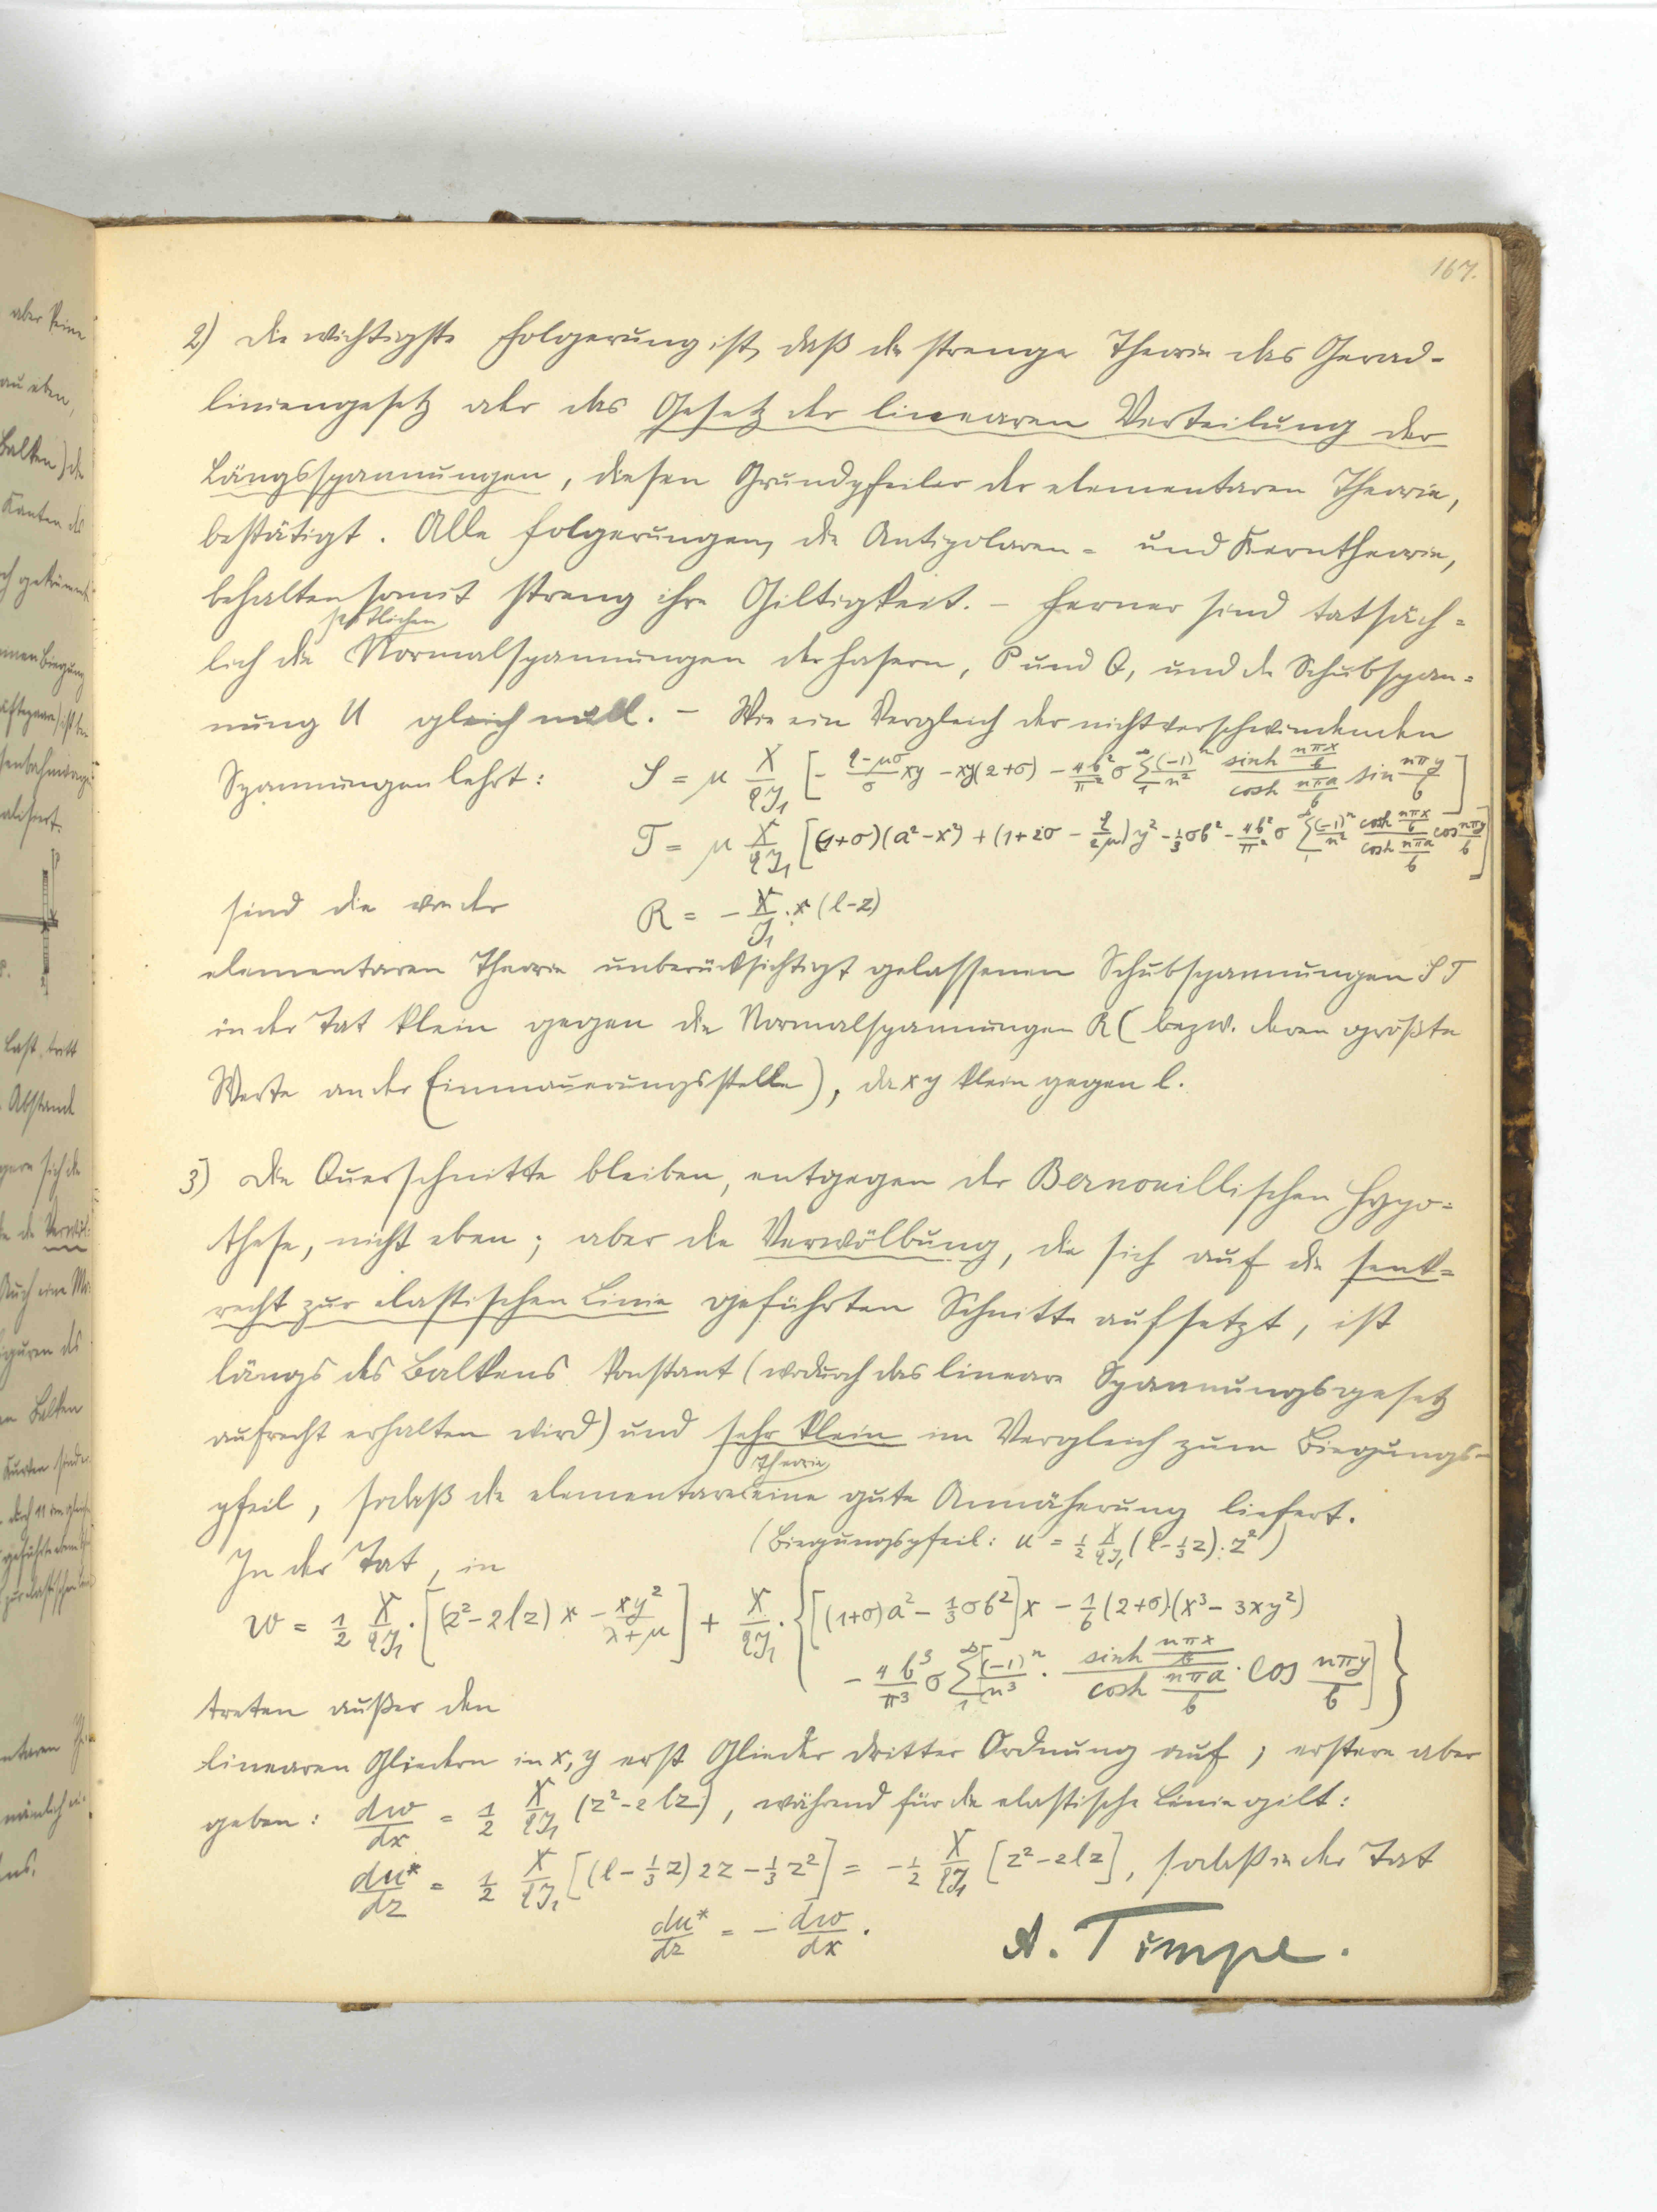 167.
2) Die wichtigste Folgerung ist, daß die strenge Theorie das Gerad-
liniengesetz oder das Gesetz der linearen Verteilung der
Längsspannungen, diesen Grundpfeiler der elementaren Theorie,
bestätigt. Alle Folgerungen, die Antipolaren- und Kerntheorie,
behalten somit streng ihre Giltigkeit. – Ferner sind tatsäch-
seitlichen
lich die Normalspannungen der Fasern, P und Q, und die Schubspan-
nung U gleich null. – Wie ein Vergleich der nichtverschwindenden
Spannungen lehrt: S = μ X/qJ₁ [- (q-μσ)/σ xy - xy(2+σ) - 4b²/π² σ ∑₁^∞ (-1)ⁿ/n² (sinh nπx/b)/(cosh nπa/b) sin nπy/b]
T = μ X/qJ₁ [(1+σ)(a²-x²) + (1+2σ - q/2μ) y² - 1/3 σb² - 4b²/π² σ ∑₁^∞ (-1)ⁿ/n² (cosh nπx/b)/(cosh nπa/b) cos nπy/b]
sind die von der R = - X/J₁ · x (l-z)
elementaren Theorie unberücksichtigt gelassenen Schubspannungen S T
in der Tat klein gegen die Normalspannungen R (bezw. deren größte
Werte an der Einmauerungsstelle), da x y klein gegen l.
3) Die Querschnitte bleiben, entgegen der Bernouillischen Hypo-
these, nicht eben; aber die Verwölbung, die sich auf die senk-
recht zur elastischen Linie geführten Schnitte aufsetzt, ist
längs des Balkens konstant (wodurch das lineare Spannungsgesetz
aufrecht erhalten wird) und sehr klein im Vergleich zum Biegungs-
Theorie
pfeil, sodaß die elementare eine gute Annäherung liefert.
(Biegungspfeil: u = 1/2 X/qJ₁ (l - 1/3 z) · z²)
In der Tat, in
w = 1/2 X/qJ₁ · [(z²-2lz) x - xy²/(λ+μ)] + X/qJ₁ · {[(1+σ)a² - 1/3 σb²] x - 1/6 (2+σ)·(x³-3xy²)
- 4b³/π³ σ ∑₁^∞ [(-1)ⁿ/n³ · (sinh nπx/b)/(cosh nπa/b) · cos nπy/b]}
treten außer den
linearen Gliedern in x, y erst Glieder dritter Ordnung auf; erstere aber
geben: dw/dx = 1/2 X/qJ₁ (z²-2lz), während für die elastische Linie gilt:
du*/dz = 1/2 X/qJ₁ [(l - 1/3 z) 2z - 1/3 z²] = - 1/2 X/qJ₁ [z²-2lz], sodaß in der Tat
du*/dz = - dw/dx .
A. Timpe.